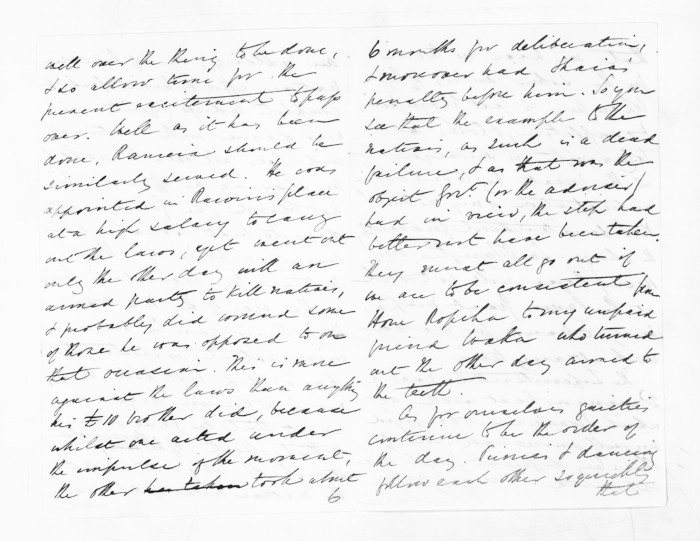 well over the thing to be done,
& so allow time for the
present excitement to pass
over. Well as it has been
done, Rameia should be
similarly served. He was
appointed in Rawiri's place
at a high salary to carry
out the laws, yet went out
only the other day with an
armed party to kill natives,
& probably did wound some
of those he was opposed to on
that occasion. This is more
against the laws than anything
his £10 brother did, because
whilst one acted under
the impulse of the moment,
the other took about
6
6 months for deliberation,
& moreover had
penalty before him. So you
see that the example to the
natives, as such is a dead
failure, & as that was the
object Govt. (or the adviser)
had in view, the step had
better not have been taken.
They must all go out if
we are to be consistent from
Hone Ropiha to my unpaid
friend Waka who turned
out the other day armed to
the teeth
As for ourselves gaieties
continue to be the order of
the day. Picnics & dancing
follow each other so quickly
that